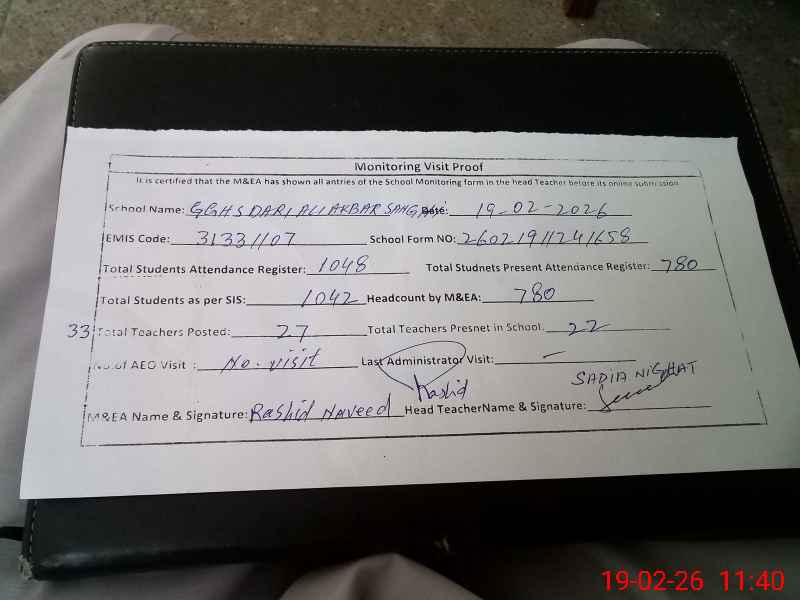 Monitoring Visit Proof
It is certified that the M&EA has shown all antries of the School Monitoring form in the head Teacher before its online submission
School Name: GGHS DARI ALI AKBAR SANG Date: 19-02-2026
EMIS Code: 31331107 School Form NO: 26021911241658
Total Students Attendance Register: 1048 Total Studnets Present Attendance Register: 780
Total Students as per SIS: 1042 Headcount by M&EA: 780
33 Total Teachers Posted: 27 Total Teachers Presnet in School. 22
No.of AEO Visit : No. visit Last Administrator Visit: —
Rashid SADIA NIGHAT
M&EA Name & Signature: Rashid Naveed Head TeacherName & Signature:
19-02-26 11:40